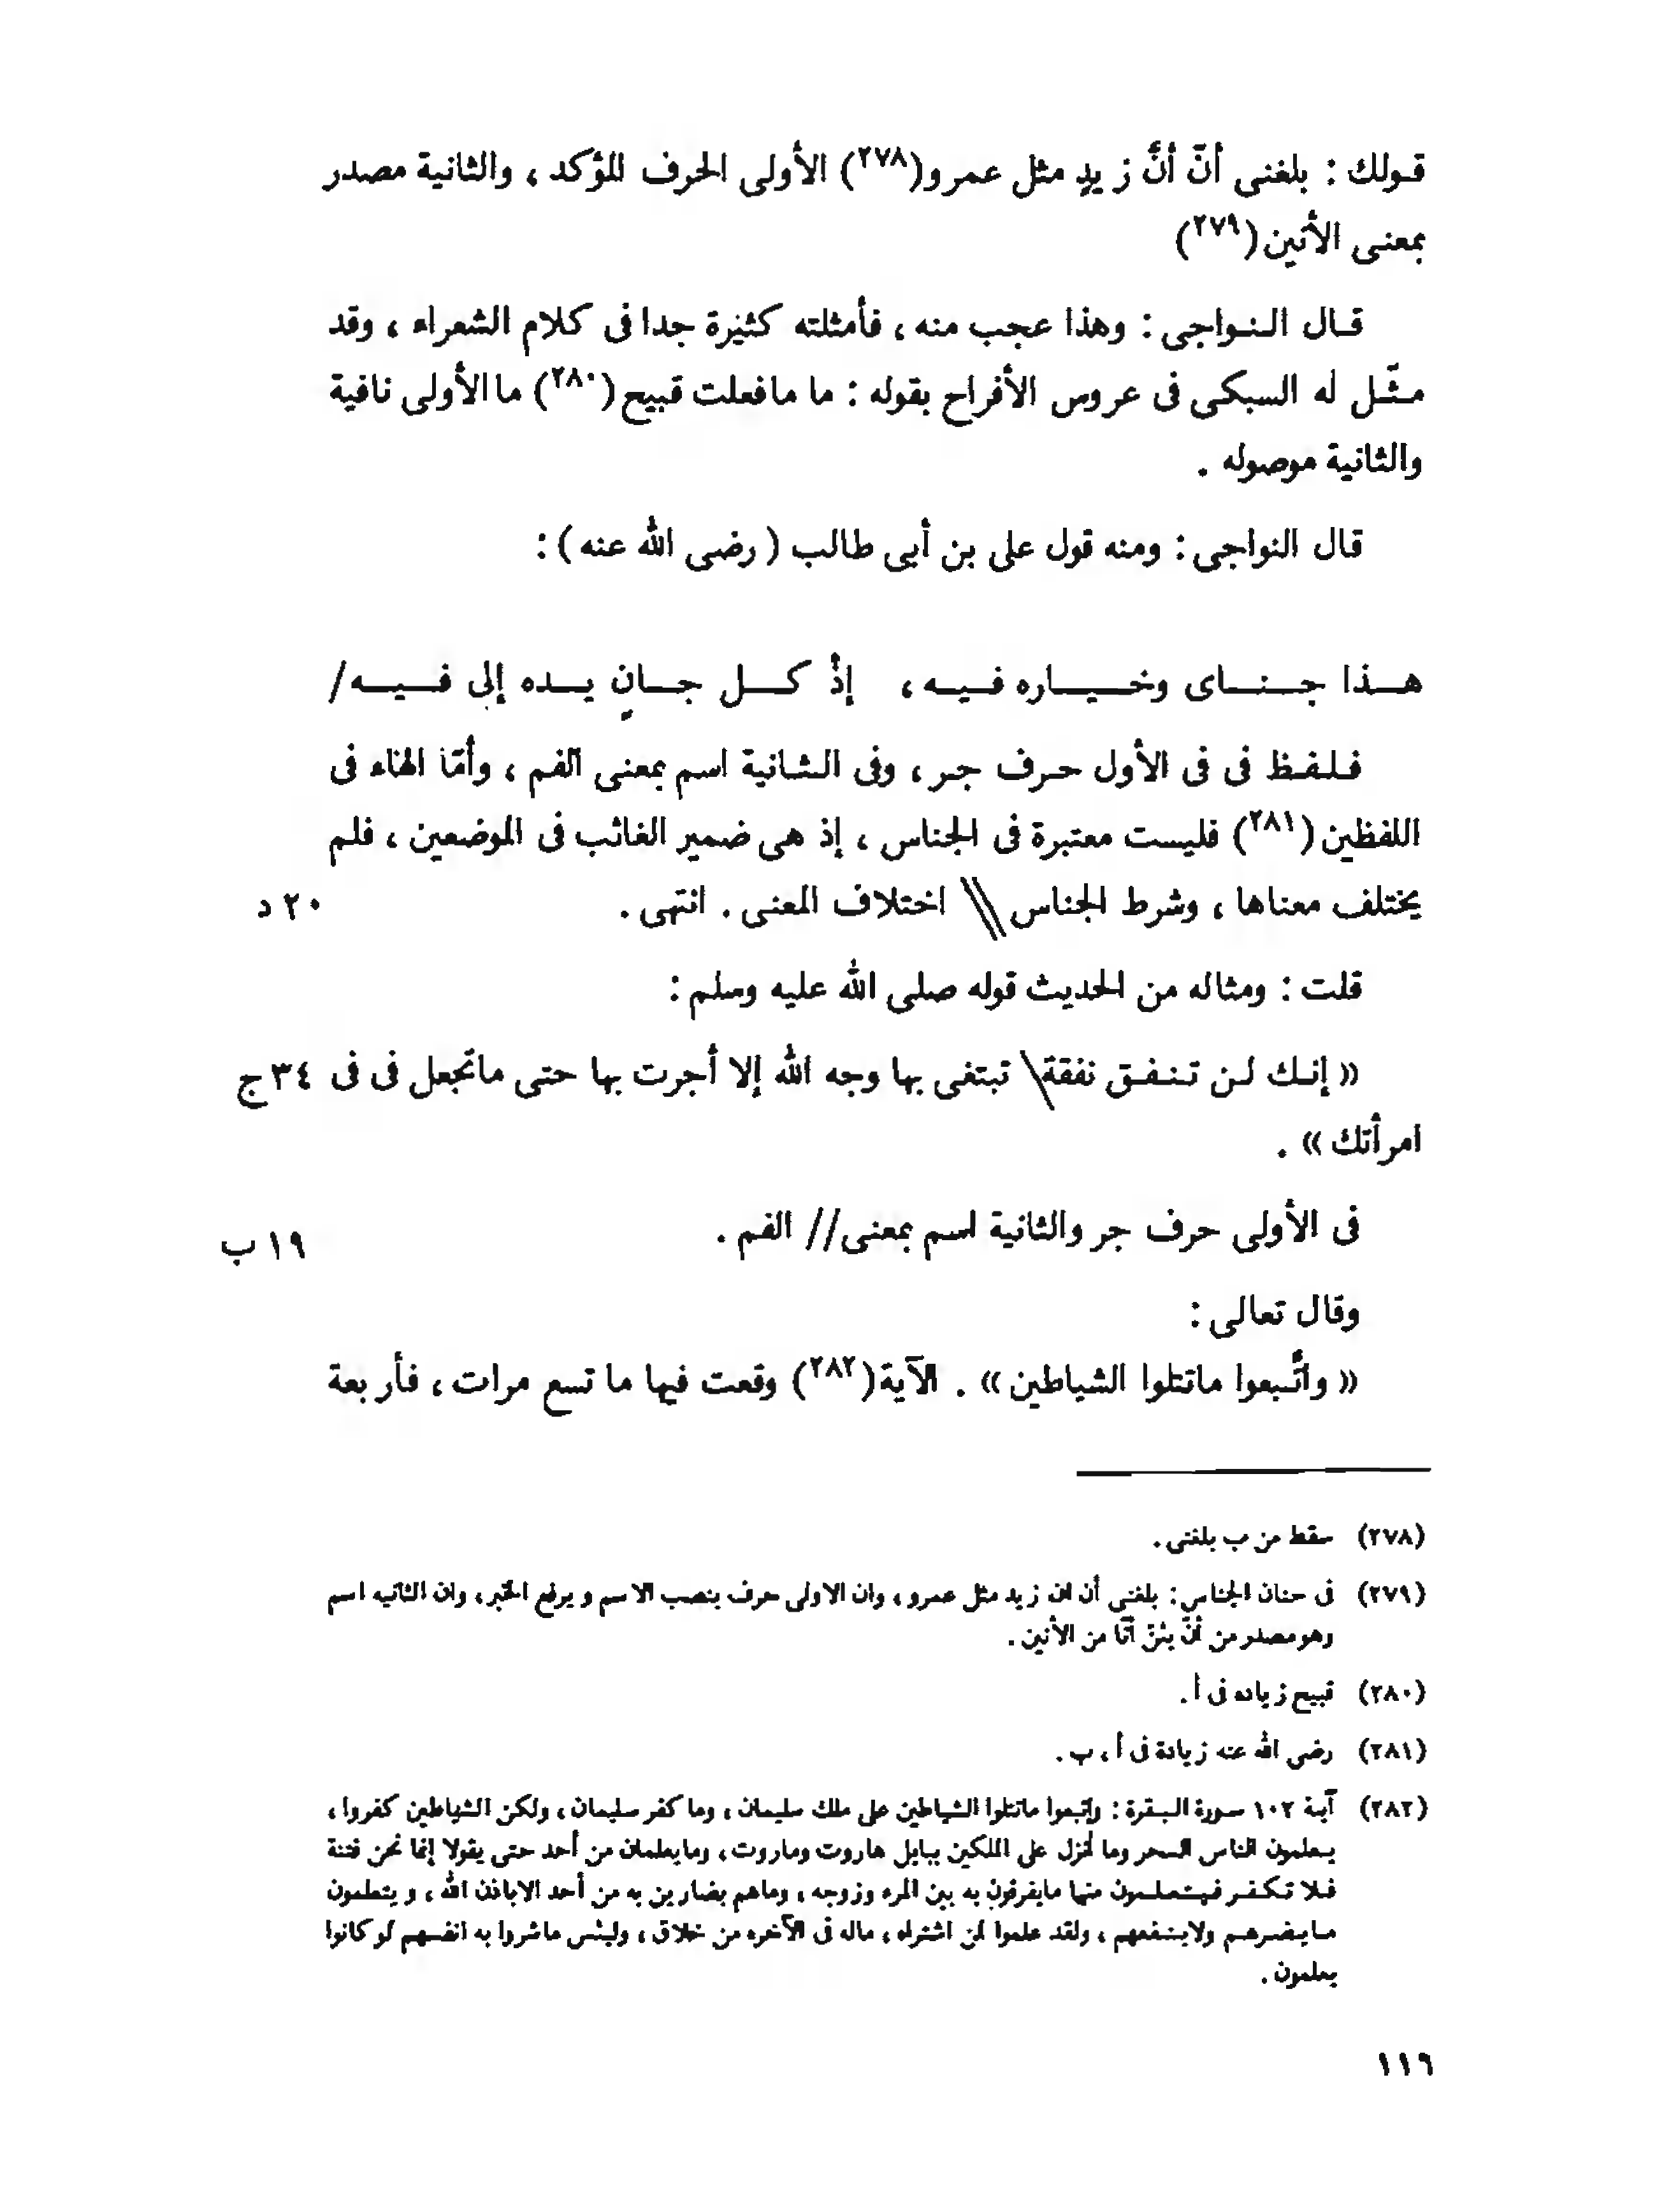 قولك : بلغنى أنّ أنَّ زيدٍ مثل عمرو(٢٧٨) الأولى الحرف المؤكد ، والثانية مصدر
بمعنى الأنين(٢٧٩)
قال النواجى : وهذا عجب منه ، فأمثلته كثيرة جدا فى كلام الشعراء ، وقد
مثّل له السبكى فى عروس الأفراح بقوله : ما مافعلت قبيح(٢٨٠) ما الأولى نافية
والثانية موصوله .
قال النواجى : ومنه قول على بن أبى طالب ( رضى الله عنه ) :
هذا جناى وخياره فيه ، إذْ كل جانٍ يده إلى فيه/
فلفظ فى فى الأول حرف جر ، وفى الثانية اسم بمعنى الفم ، وأمّا الهاء فى
اللفظين(٢٨١) فليست معتبرة فى الجناس ، إذ هى ضمير الغائب فى الموضعين ، فلم
يختلف معناها ، وشرط الجناس \\ اختلاف المعنى . انتهى . ٢٠ د
قلت : ومثاله من الحديث قوله صلى الله عليه وسلم :
« إنك لن تنفق نفقة\ تبتغى بها وجه الله إلا أجرت بها حتى ماتجعل فى فى ٣٤ ج
امرأتك » .
فى الأولى حرف جر والثانية اسم بمعنى// الفم . ١٩ ب
وقال تعالى :
« واتَّبعوا ماتتلوا الشياطين » . الآية(٢٨٢) وقعت فيها ما تسع مرات ، فأربعة
(٢٧٨) سقط من ب بلغنى .
(٢٧٩) فى حنان الجناس : بلغنى أن ان زيد مثل عمرو ، وان الاولى حرف ينصب الاسم ويرفع الخبر ، وان الثانيه اسم
وهو مصدر من أنّ يئنّ أنّا من الأنين .
(٢٨٠) قبيح زياده فى أ .
(٢٨١) رضى الله عنه زيادة فى أ ، ب .
(٢٨٢) آية ١٠٢ سورة البقرة : واتبعوا ماتتلوا الشياطين على ملك سليمان ، وما كفر سليمان ، ولكن الشياطين كفروا ،
يعلمون الناس السحر وما أنزل على الملكين ببابل هاروت وماروت ، ومايعلمان من أحد حتى يقولا إنما نحن فتنة
فلا تكفر فيتعلمون منهما مايفرقون به بين المرء وزوجه ، وماهم بضارين به من أحد الاباذن الله ، ويتعلمون
مايضرهم ولاينفعهم ، ولقد علموا لمن اشتراه ، ماله فى الآخره من خلاق ، ولبئس ماشروا به انفسهم لو كانوا
يعلمون .
١١٦